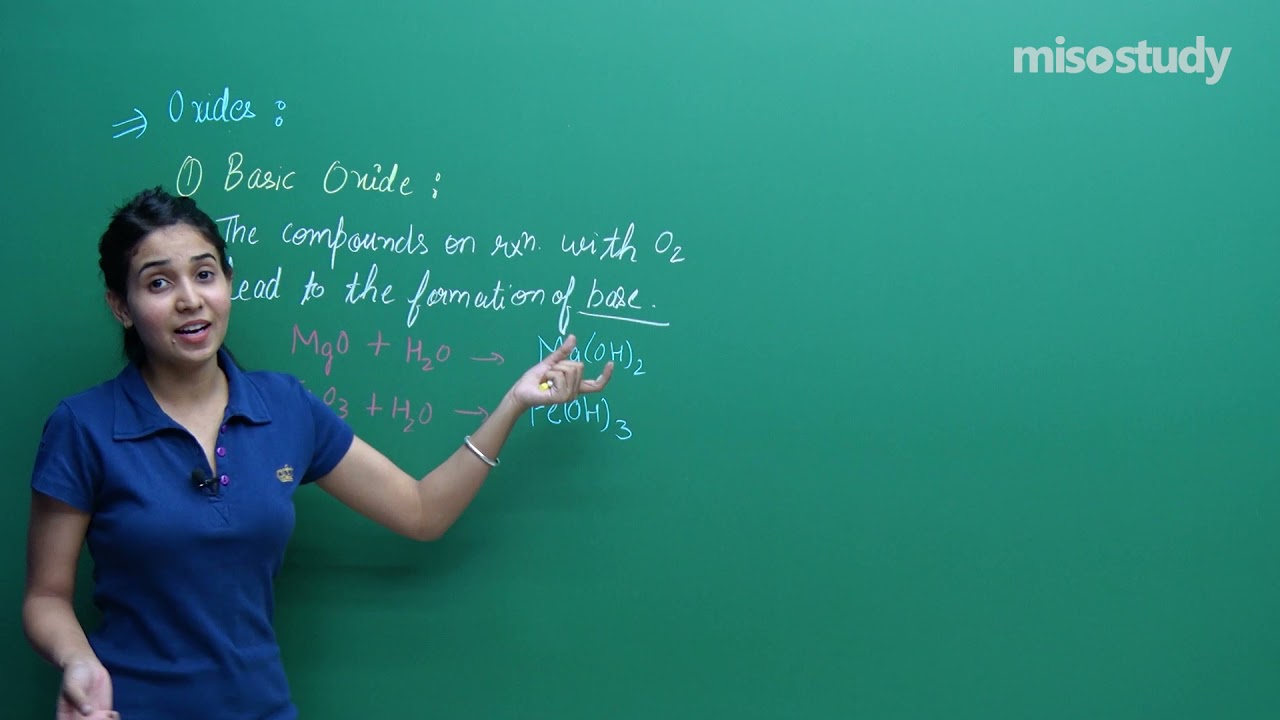 misostudy
⇒ Oxides :
① Basic Oxide :
The compounds on rxn. with O₂
lead to the formation of base.
MgO + H₂O → Mg(OH)₂
O₃ + H₂O → Fe(OH)₃